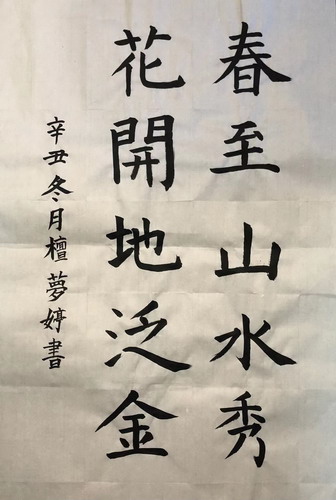 春至山水秀
花開地泛金
辛丑冬月檀夢婷書